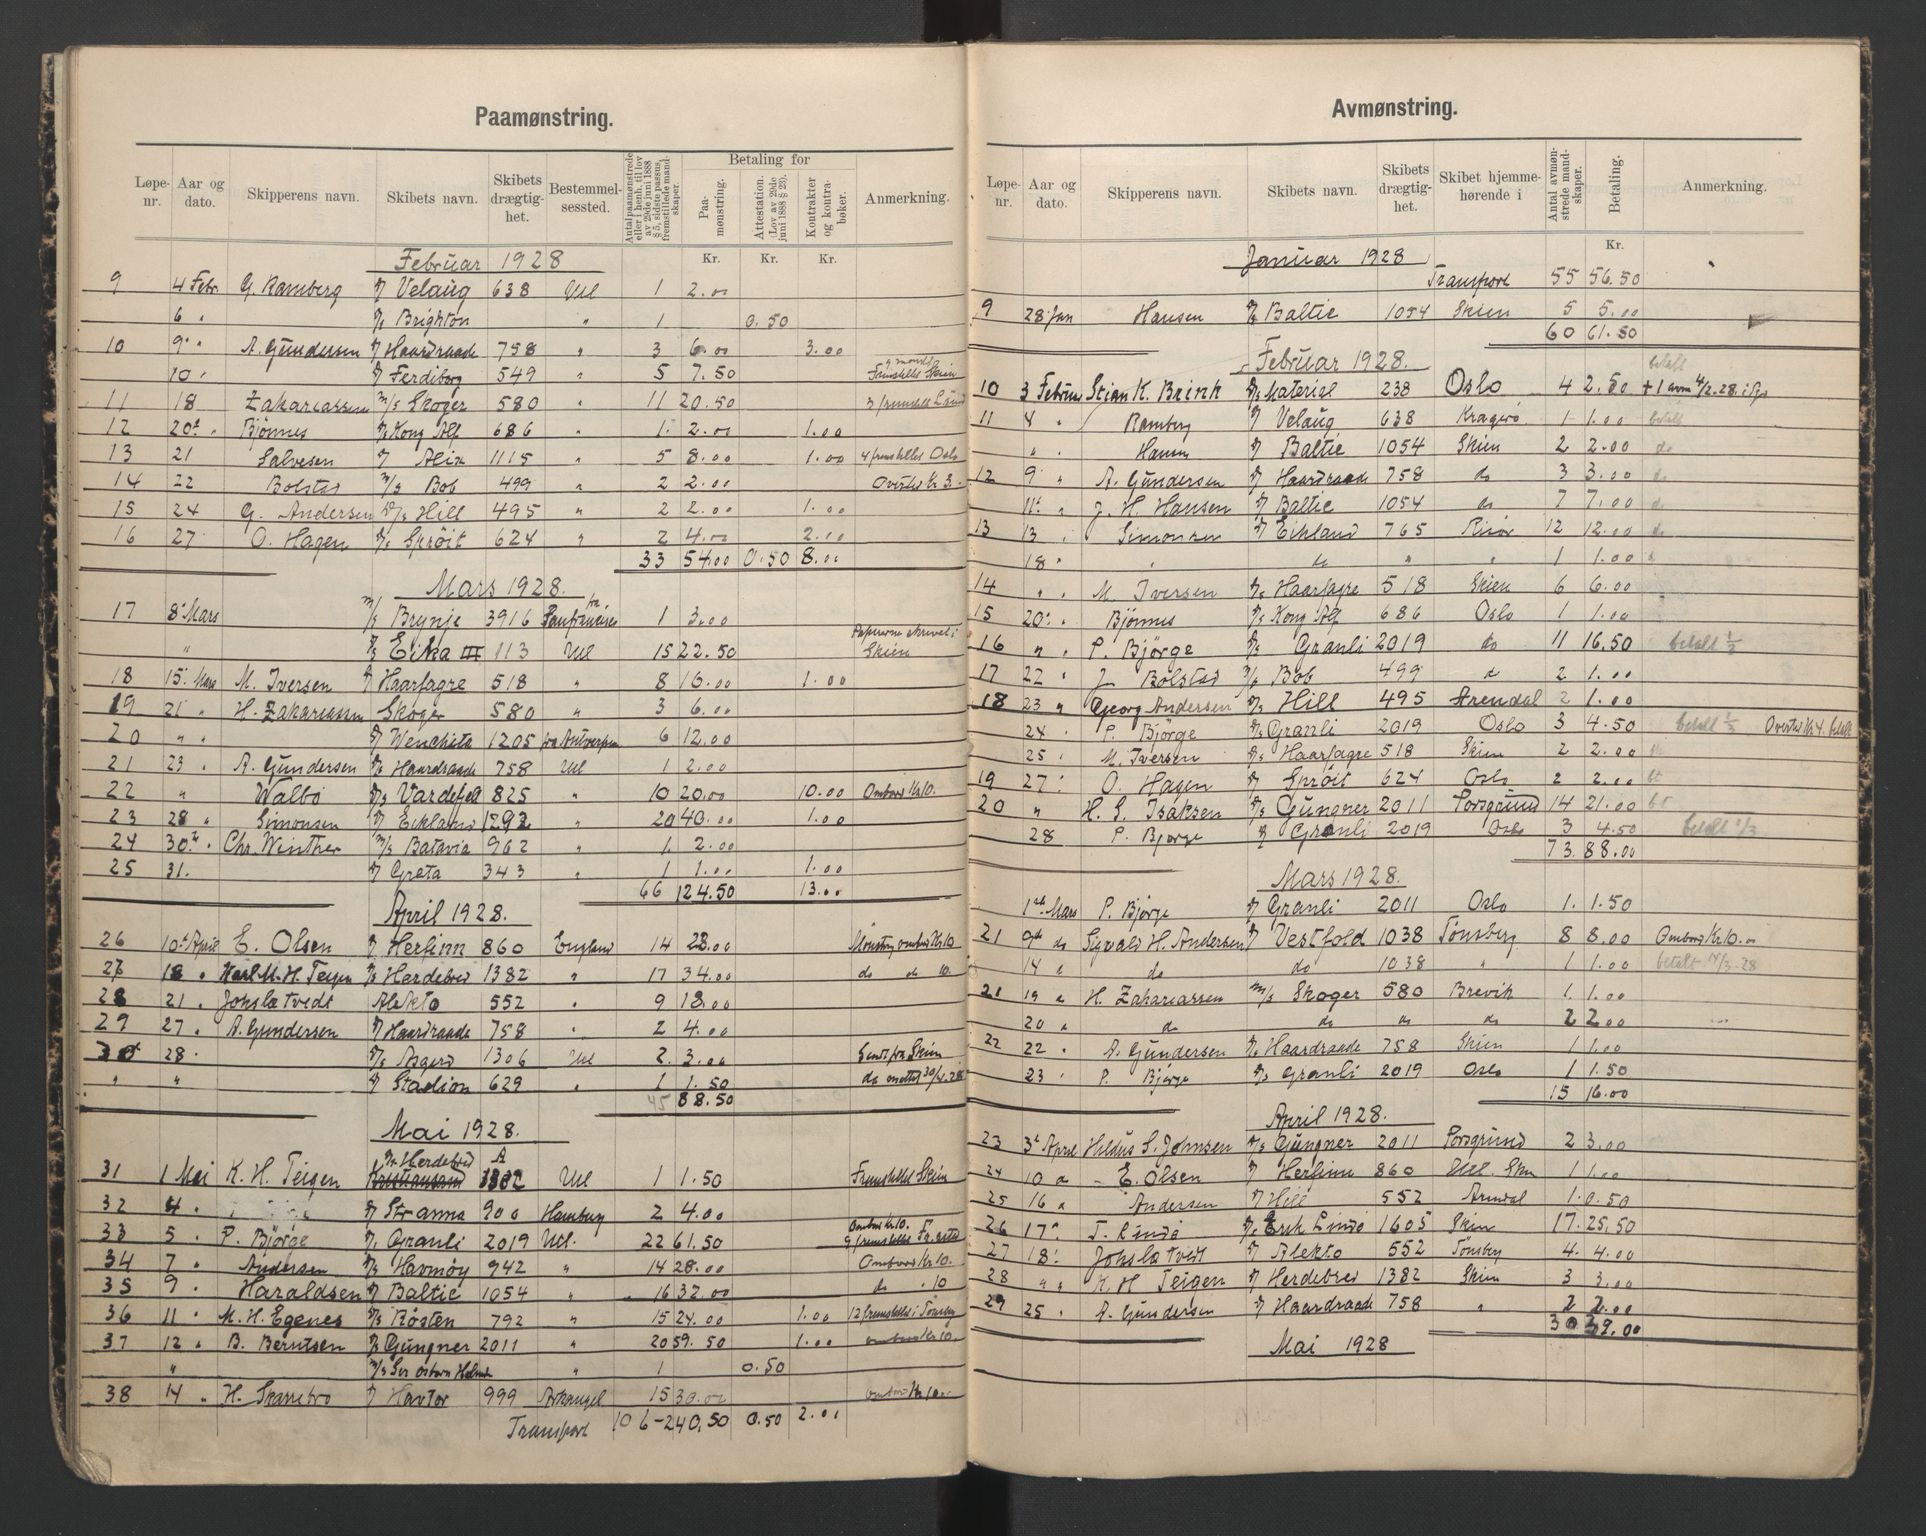 Paamønstring.
Løpe-nr. Aar og dato. Skipperens navn. Skibets navn. Skibets drægtig-het. Bestemmel-sessted. Antal paamønstrede eller i henh. til lov av 29de juni 1888 § 5, sidste passus, fremstillede mand-skaper. Betaling for Paa-mønstring. Attestation. (Lov av 29de juni 1888 § 23). Kontrakter og kontra-bøker. Anmerkning.
Kr. Kr. Kr.
Februar 1928
9 4 Febr. G. Ramberg Velaug 638 Utl 1 2.00
6 " Brighton " 1 0.50
10 9 " A. Gundersen Haardraade 758 " 3 6.00 3.00
10 " Ferdiborg 549 " 5 7.50 Fremstillet Skien
11 18 Zakariassen m/s Skoger 580 " 11 20.50 3 fremstillt
12 20 " Bjønnes Kong Alf 686 " 1. 2.00 1.00
13 21 Salvesen Alix 1115 " 5 8.00 1.00 4 fremstillet Oslo
14 22 Bolstad m/s Bob 499 " 2 2.00 Overtid Kr 3.-
15 24 G. Andersen Hill 495 " 2 2.00 1.00
16 27 O. Hagen Sprøit 624 " 2 4.00 2.00
33 54.00 0.50 8.00
Mars 1928.
17 8 Mars m/s Brynje 3916 fra Sanfrancisco 1 3.00
" Eika III 113 Utl 15 22.50 Papirerne skrevet i Skien
18 15. Mars M. Iversen Haarfagre 518 " 8 16.00 1.00
19 21 " H. Zakariassen Skoger 580 " 3 6.00
20 " " Wenchita 1205 fra Antverpen 6 12.00
21 23 " A. Gundersen Haardraade 758 Utl 1 2.00
22 " Walbo Vardefjell 825 " 10 20.00 10.00 Ombord Kr 10.
23 28 " Simonsen Eikland 1292 " 20 40.00 1.00
24 30 " Chr. Winther m/s Batavia 962 " 1. 2.00
25 31. Greta 343 " 1 1.00 1.00
66 124.50 13.00
April 1928.
26 10 April E. Olsen Herlinn 860 England 14 28.00 Mønstring ombord Kr 10
27 18 " Karl M. H. Teigen Herdebred 1382 " 17 34.00 do do 10.
28 21 " Johs Latvedt Alekto 552 " 9 18.00
29 27 " A. Gundersen Haardraade 758 " 2 4.00
30 28 " Asgerd 1306 Utl 2. 3.00 Sendt fra Skien
" " Stadion 629 " 1 1.50 do mottat 30/4-28
45 88.50
Mai 1928.
31 1 Mai K. H. Teigen Herdebred 1382 Utl 1 1.50 Fremstillet Skien
32 4 " Stranna 900 Hamburg 2 4.00
33 5 " P. Bjørge Granli 2019 Utl. 22 61.50 Ombord Kr 10. 9 fremstillet
34 7 " Andersen Havmøy 942 " 14 28.00 Ombord Kr 10.
35 9 " Haraldsen Baltic 1054 " 16 32.00 do " 10
36 11 " M. H. Egenes Røsten 792 " 15 24.00 1.00 12 fremstillet i Tønsberg
37 12 " B. Berntsen Gungner 2011 " 20 59.50 1.00 ombord Kr 10.
" m/s " 1 0.50
38 14 " H. Skarebro Havtor 999 Arkangel 15 30.00 ombord Kr 10.00
Transport 106-240.50 0.50 2.00
Avmønstring.
Løpe-nr. Aar og dato. Skipperens navn. Skibets navn. Skibets drægtig-het. Skibet hjemme-hørende i Antal avmøn-strede mand-skaper. Betaling. Anmerkning.
Kr.
Januar 1928
Transport 55 56.50
9 28 Jan Hansen Baltic 1054 Skien 5 5.00
60 61.50
Februar 1928. betalt
10 3 Februar Stian K. Brink Material 238 Oslo 4 2.50 + 1 avm 4/2-28
11 4 " Ramberg Velaug 638 Kragerø 1 1.00 betalt
" " Hansen Baltic 1054 Skien 2 2.00 do
12 9 " A. Gundersen Haardraade 758 do 3 3.00 d.
11 " J. H. Hansen Baltic 1054 do 7 7.00 d.
13 13 " Simonsen Eikland 765 Risør 12 12.00 d.
18 " " do " " 1 1.00
14 " " M. Iversen Haarfagre 518 Skien 6 6.00
15 20 " Bjønnes Kong Alf 686 Oslo 1 1.00
16 " " P. Bjørge Granli 2019 do 11 16.50 betalt 1/3
17 22 " J Bolstad m/s Bob 499 d 2 1.00
18 23 " Georg Andersen Hill 495 Arendal 2 1.00
24 " P. Bjørge Granli 2019 Oslo 3 4.50 betalt 1/3 Overtid Kr 4. betalt
25 " M. Iversen Haarfagre 518 Skien 2 2.00
19 27 " O. Hagen Sprøit 624 Oslo 2 2.00 bt
20 " H. S. Isaksen Gungner 2011 Porsgrund 14 21.00 bt
28 P. Bjørge Granli 2019 Oslo 3 4.50 betalt 1/3
73 88.00
Mars 1928.
1 Mars P. Bjørge Granli 2011 Oslo 1. 1.50
21 9 do Sigvald H. Andersen Vestfold 1038 Tønsberg 8 8.00 Ombord Kr 10.00
14 " do do 1038 " 1 1.00 betalt 14/3-28
21 19 " H. Zakariassen m/s Skoger 580 Brevik 1. 1.00
20 " do do do do 2 2.00
22 22 " A. Gundersen Haardraade 758 Skien 1 1.00
23 " P. Bjørge Granli 2019 Oslo 1 1.50
15 16.00
April 1928.
23 3 April Hildus S. Johnsen Gungner 2011 Porsgrund 2 3.00
24 10 " E. Olsen Herlinn 860 Skien 1 1.00
25 16 " Andersen Hill 552 Arendal 1. 0.50
26 17 " T. Lindø Erik Lindø 1605 Skien 17. 25.50
27 18 " Johs Latvedt Alekto 552 Tønsberg 4. 4.00
28 " " K. H Teigen Herdebred 1382 Skien 3 3.00
29 25 " A. Gundersen Haardraade 758 " 2 2.00
30 39.00
Mai 1928